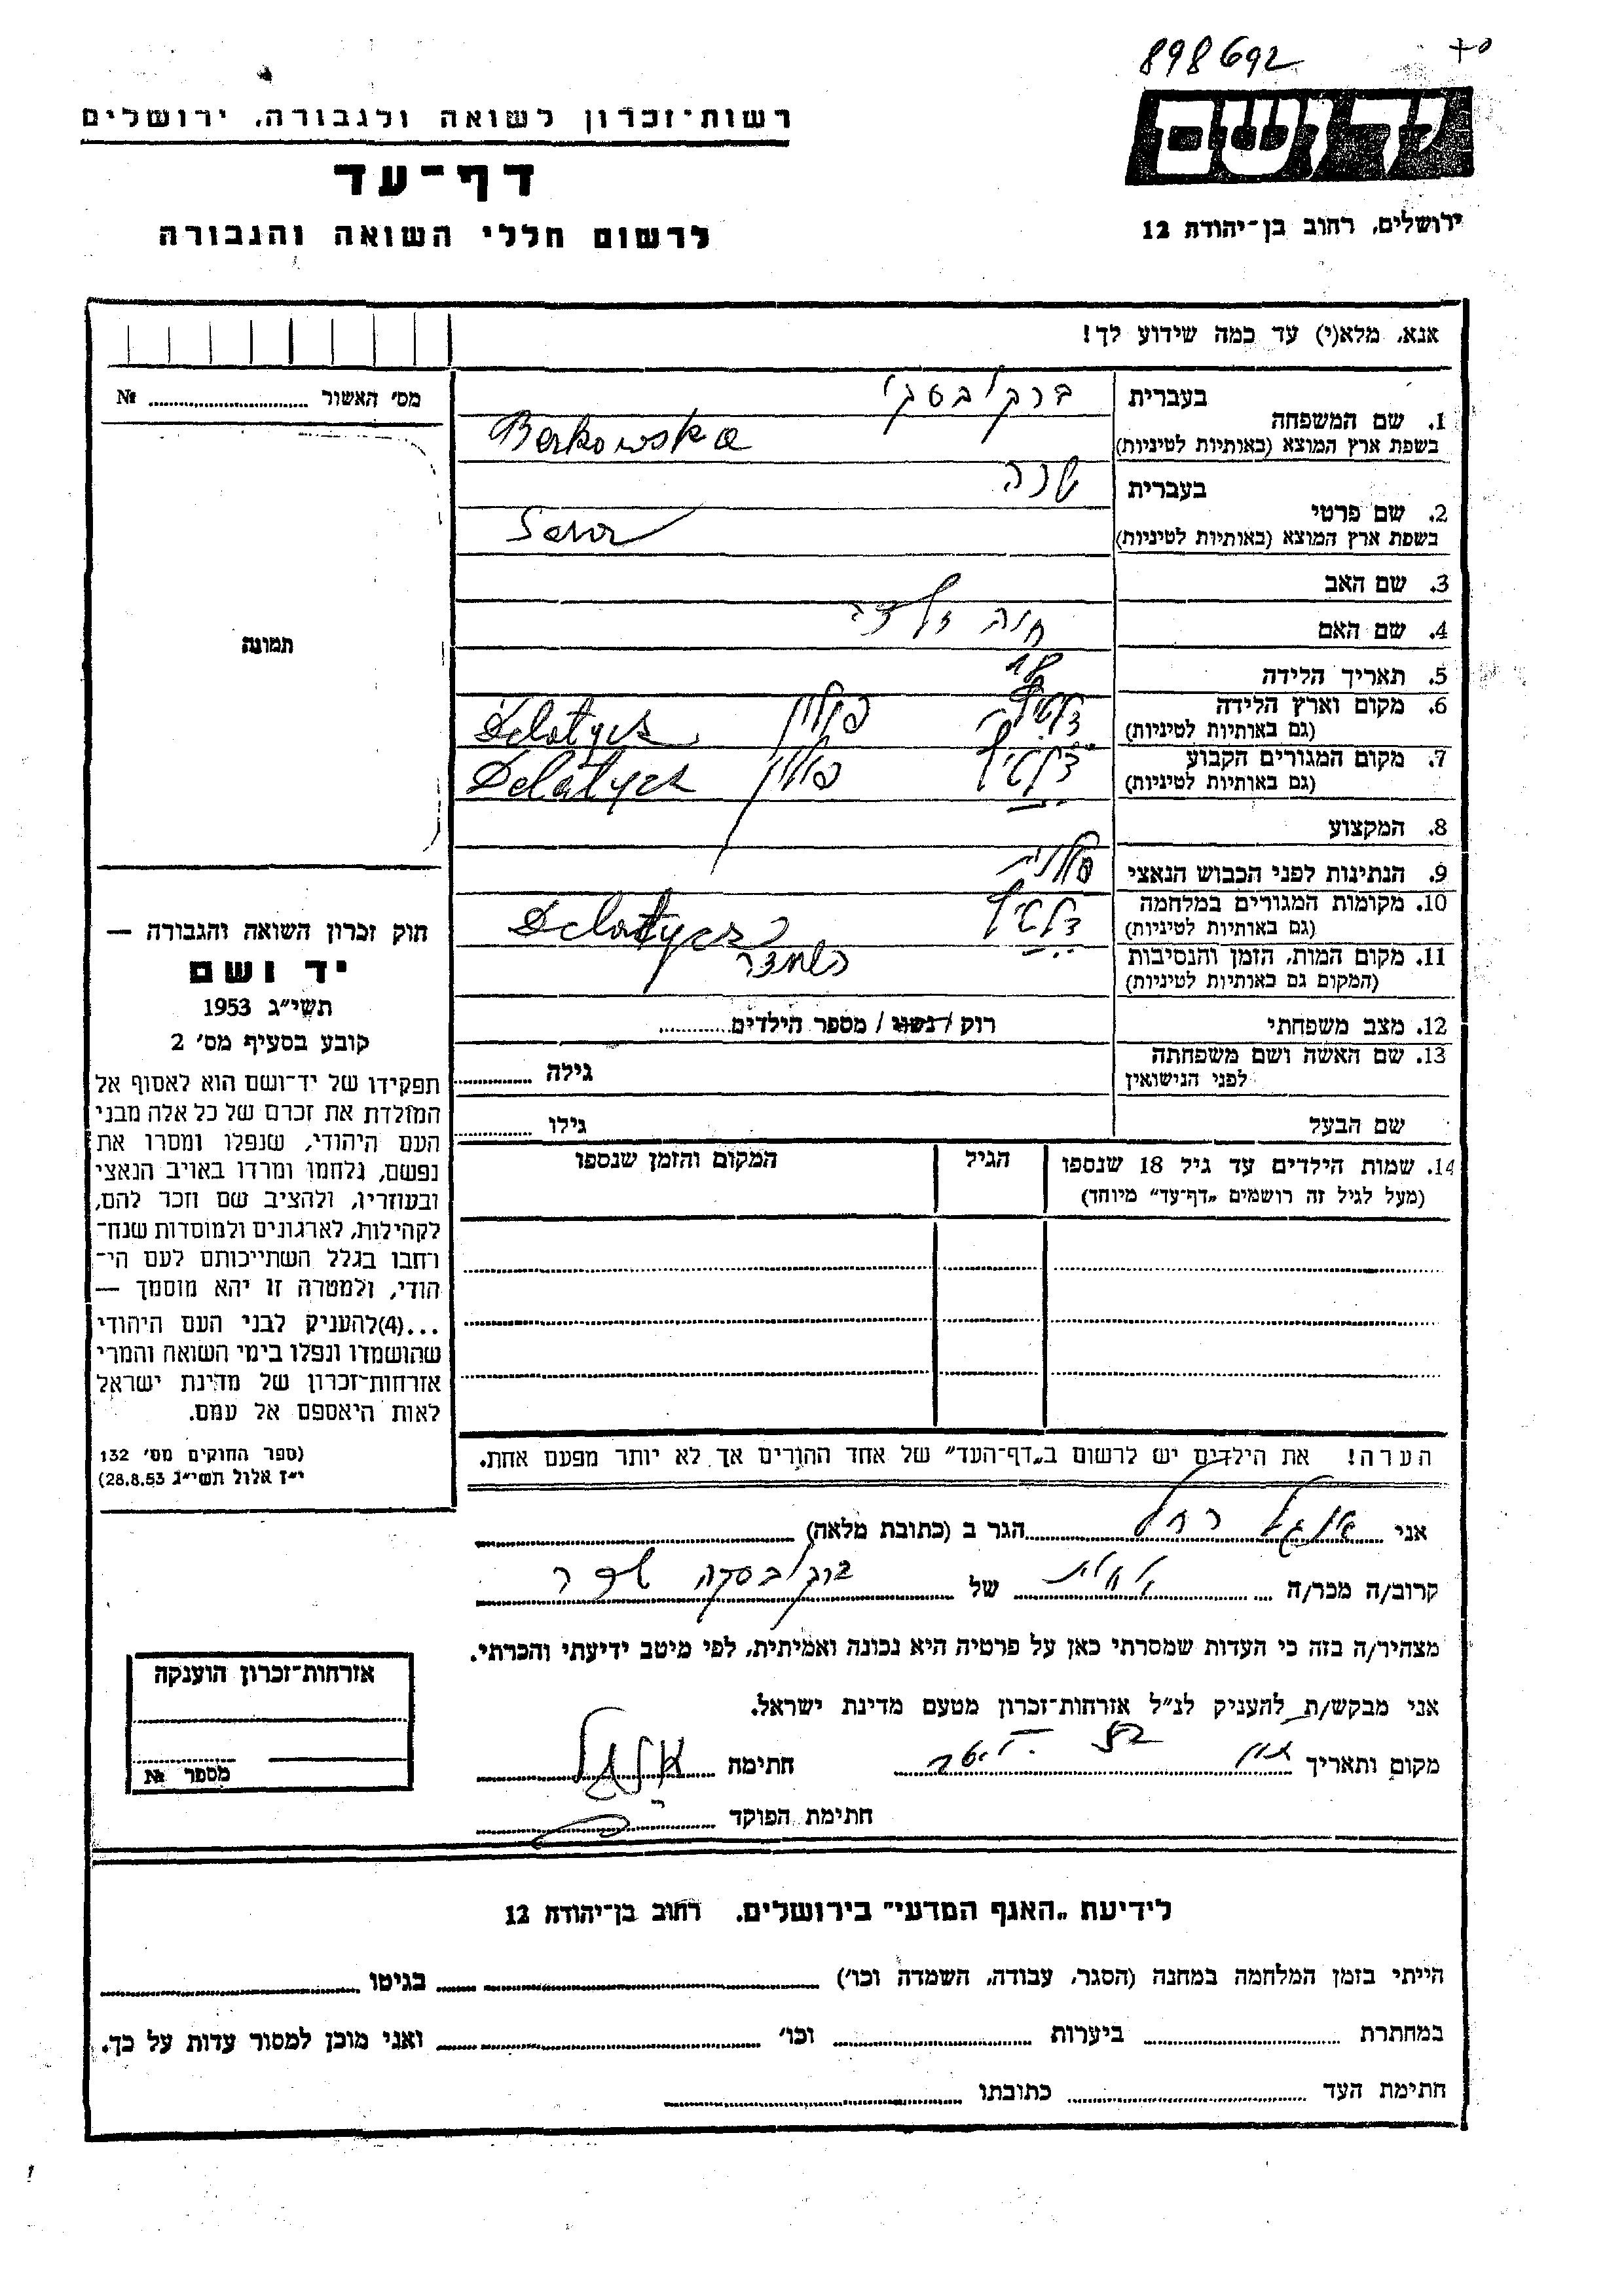 898692
יד ושם
ירושלים, רחוב בן-יהודה 12
רשות-זכרון לשואה ולגבורה, ירושלים
דף-עד
לרשום חללי השואה והגבורה
אנא, מלא(י) עד כמה שידוע לך!
מס' האשור № 
1. שם המשפחה
בעברית ברקובסקי
בשפת ארץ המוצא (באותיות לטיניות) Berkowska
2. שם פרטי
בעברית שרה
בשפת ארץ המוצא (באותיות לטיניות) Sara
3. שם האב
4. שם האם חיה
5. תאריך הלידה 18
6. מקום וארץ הלידה פולין
(גם באותיות לטיניות) Delatycz
7. מקום המגורים הקבוע פולין
(גם באותיות לטיניות) Delatycz
8. המקצוע
9. הנתינות לפני הכבוש הנאצי פולנית
10. מקומות המגורים במלחמה
(גם באותיות לטיניות) Delatycz
11. מקום המות, הזמן והנסיבות
(המקום גם באותיות לטיניות)
12. מצב משפחתי רוק / נשוי / מספר הילדים
13. שם האשה ושם משפחתה
לפני הנישואין גילה
שם הבעל גילו
14. שמות הילדים עד גיל 18 שנספו
(מעל לגיל זה רושמים "דף-עד" מיוחד)
הגיל
המקום והזמן שנספו
הערה! את הילדים יש לרשום ב"דף-העד" של אחד ההורים אך לא יותר מפעם אחת.
תמונה
חוק זכרון השואה והגבורה —
יד ושם
תשי"ג 1953
קובע בסעיף מס' 2
תפקידו של יד-ושם הוא לאסוף אל
המולדת את זכרם של כל אלה מבני
העם היהודי, שנפלו ומסרו את
נפשם, נלחמו ומרדו באויב הנאצי
ובעוזריו, ולהציב שם וזכר להם,
לקהילות, לארגונים ולמוסדות שנח-
רבו בגלל השתייכותם לעם הי-
הודי, ולמטרה זו יהא מוסמך —
...(4) להעניק לבני העם היהודי
שהושמדו ונפלו בימי השואה והמרי
אזרחות-זכרון של מדינת ישראל
לאות היאספם אל עמם.
(ספר החוקים מס' 132
י"ז אלול תשי"ג 28.8.53)
אני רחל הגר ב (כתובת מלאה)
קרוב/ה מכר/ה של ברקובסקה שרה
מצהיר/ה בזה כי העדות שמסרתי כאן על פרטיה היא נכונה ואמיתית, לפי מיטב ידיעתי והכרתי.
אני מבקש/ת להעניק לנ"ל אזרחות-זכרון מטעם מדינת ישראל.
מקום ותאריך חתימה
חתימת הפוקד
אזרחות-זכרון הוענקה
מספר №
לידיעת "האגף המדעי" בירושלים, רחוב בן-יהודה 12
הייתי בזמן המלחמה במחנה (הסגר, עבודה, השמדה וכו') בגיטו
במחתרת ביערות וכו' ואני מוכן למסור עדות על כך.
חתימת העד כתובתו